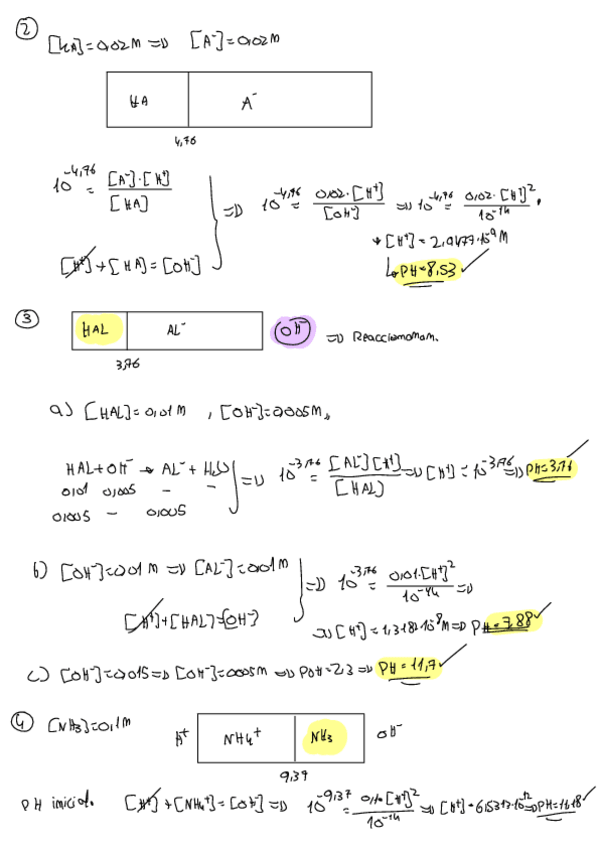 ②
[HA]=0,02M ⇒ [A⁻]=0,02M
HA A⁻
4,76
10^-4,76 = [A⁻]·[H⁺] / [HA]
[H⁺]+[HA]=[OH⁻]
⇒ 10^-4,76 = 0,02·[H⁺] / [OH⁻] ⇒ 10^-4,76 = 0,02·[H⁺]² / 10^-14
→ [H⁺]= 2,9477·10^-9 M
↳ PH=8,53 ✓
③
HAL AL⁻ OH⁻ ⇒ Reaccionan.
3,76
a) [HAL]=0,01M , [OH⁻]=0,005M
HAL+OH⁻ → AL⁻ + H₂O
0,01 0,005 - -
0,005 - 0,005
⇒ 10^-3,76 = [AL⁻][H⁺] / [HAL] ⇒ [H⁺] = 10^-3,76 ⇒ PH=3,76 ✓
b) [OH⁻]=0,01M ⇒ [AL⁻]=0,01M
[H⁺]+[HAL]=[OH⁻]
⇒ 10^-3,76 = 0,01·[H⁺]² / 10^-14 ⇒
⇒ [H⁺]=1,318·10^-8 M ⇒ PH=7,88 ✓
c) [OH⁻]=0,015 ⇒ [OH⁻]=0,005M ⇒ POH=2,3 ⇒ PH=11,7 ✓
④ [NH₃]=0,1M
H⁺ NH₄⁺ NH₃ OH⁻
9,37
PH inicial. [H⁺]+[NH₄⁺]=[OH⁻] ⇒ 10^-9,37 = 0,1·[H⁺]² / 10^-14 ⇒ [H⁺]=6,5313·10^-12 ⇒ PH=11,18 ✓